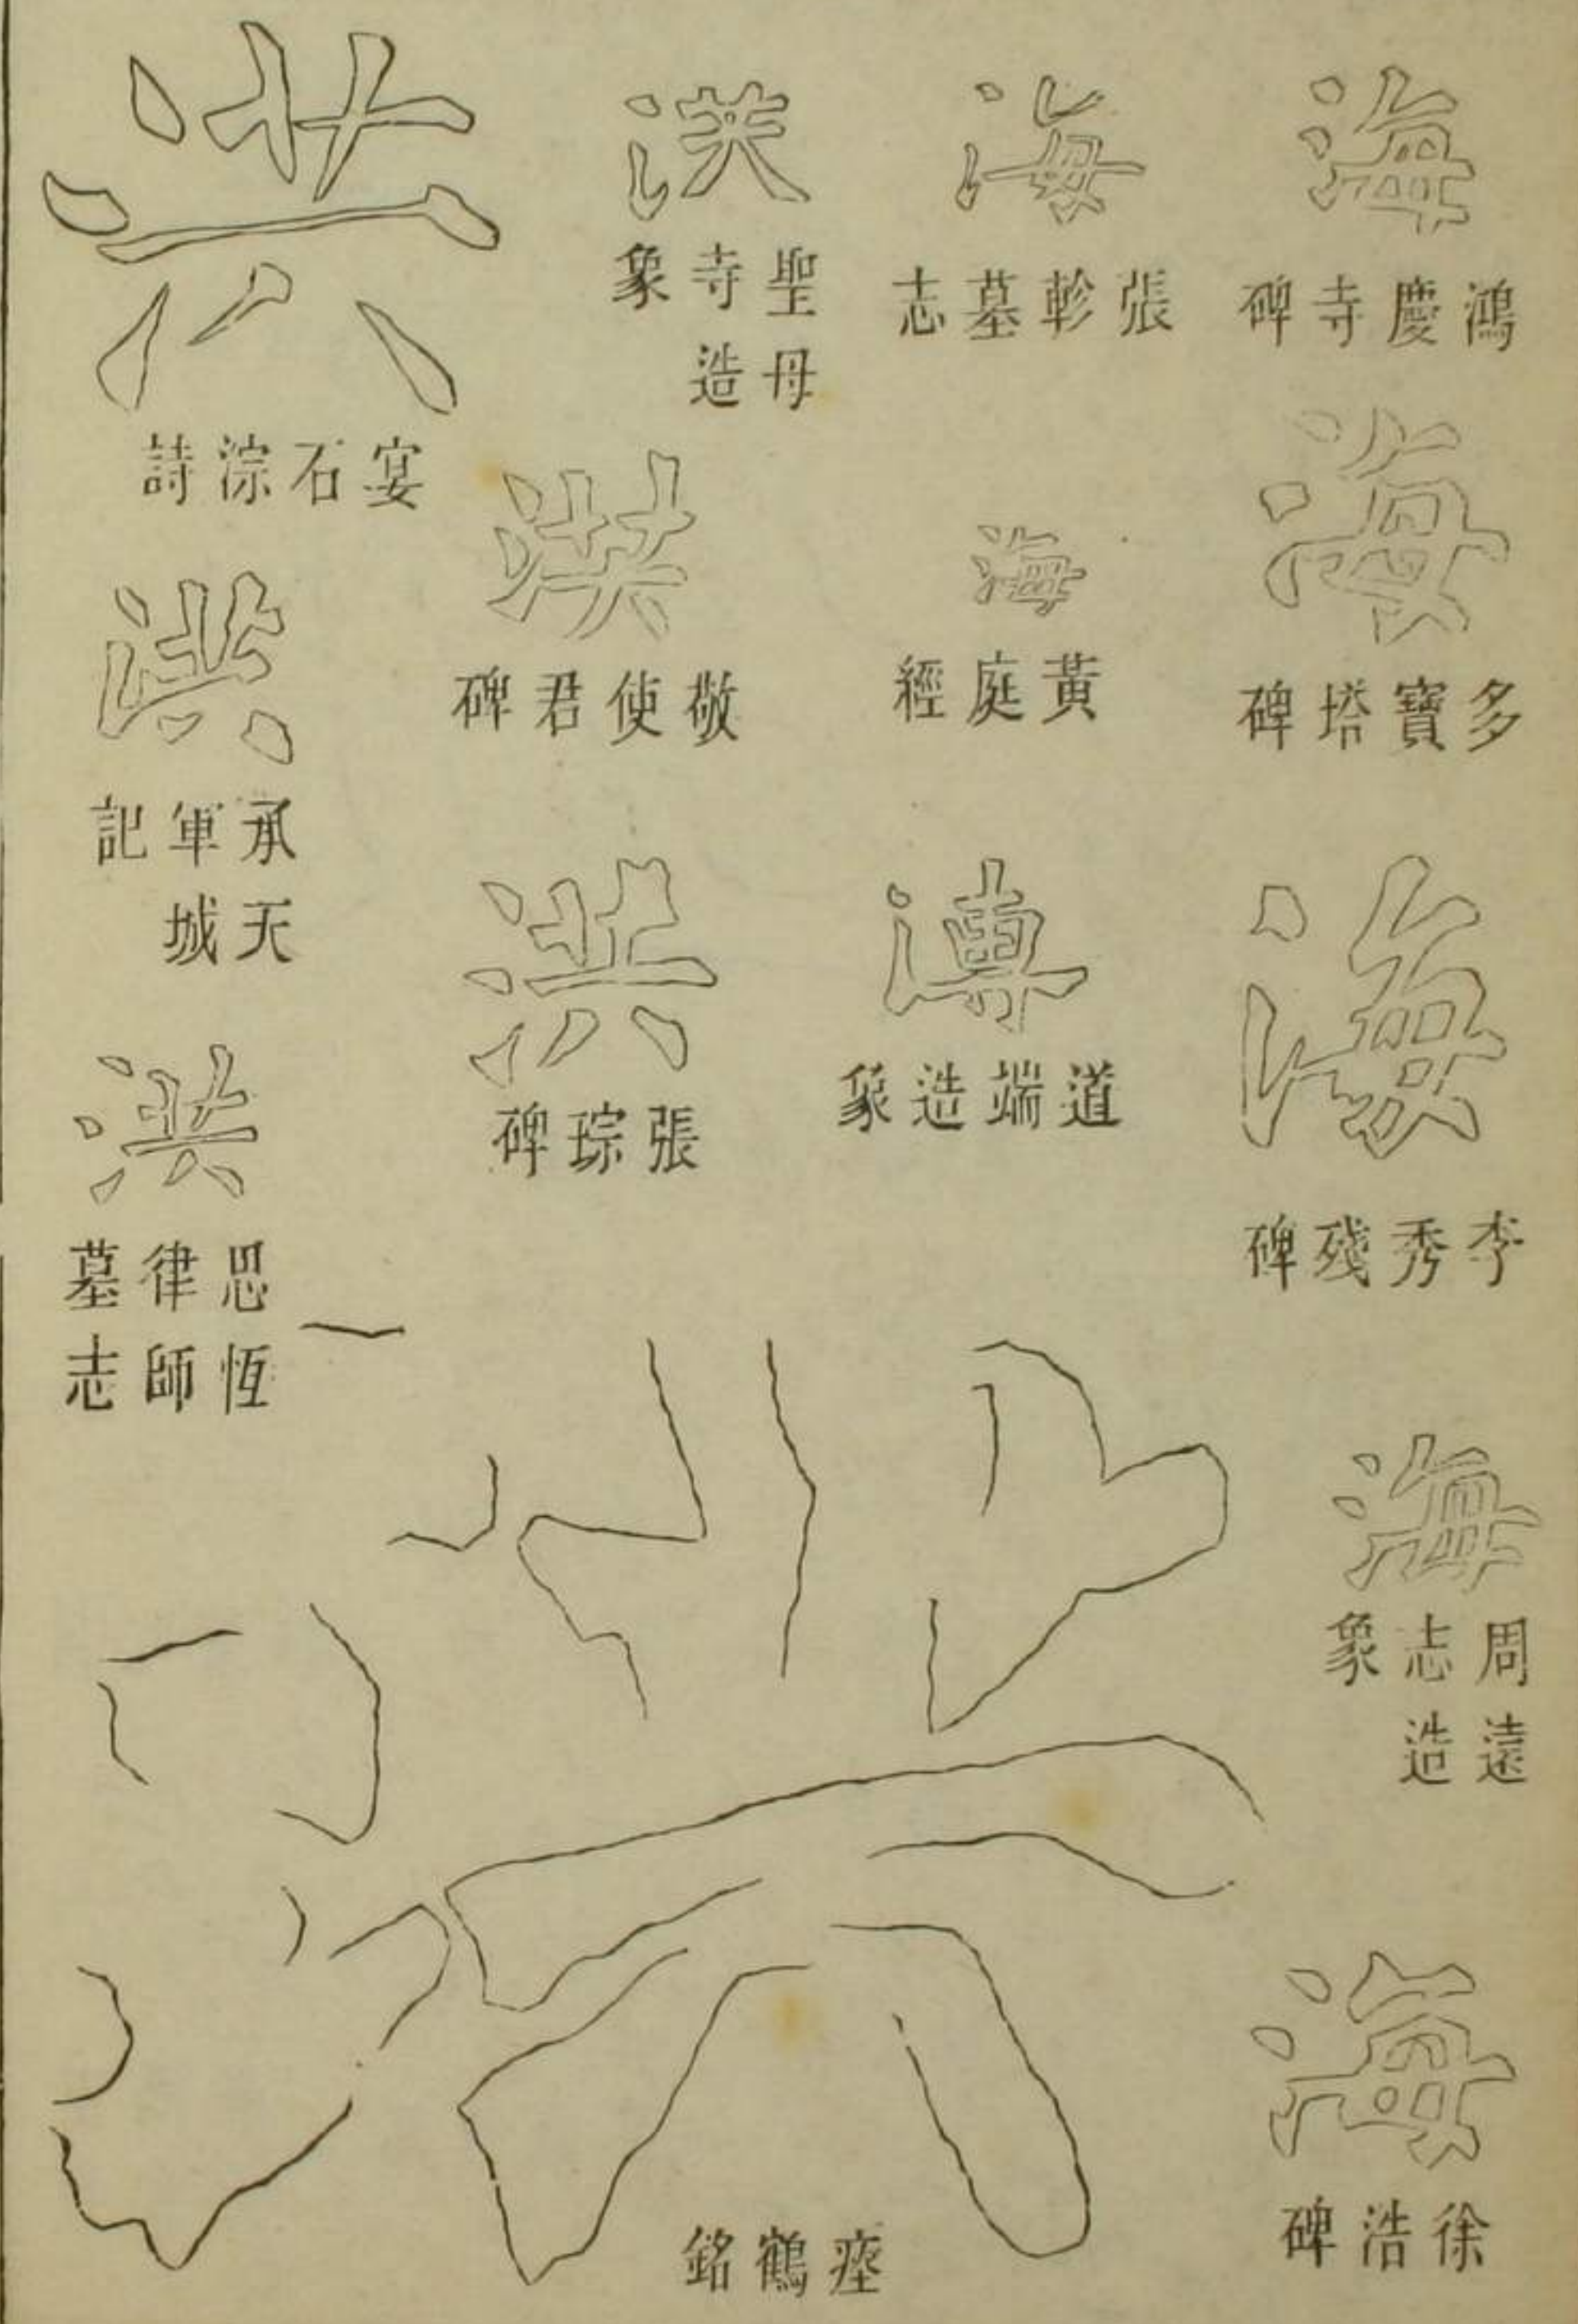 海
鴻慶寺碑
海
多寶塔碑
海
李秀殘碑
海
周遠志造象
海
徐浩碑
海
張軫墓志
海
黃庭經
道端造象
洪
瘞鶴銘
洪
聖母寺造象
洪
敬使君碑
洪
張琮碑
洪
宴石淙詩
洪
承天軍城記
洪
思恆律師墓志